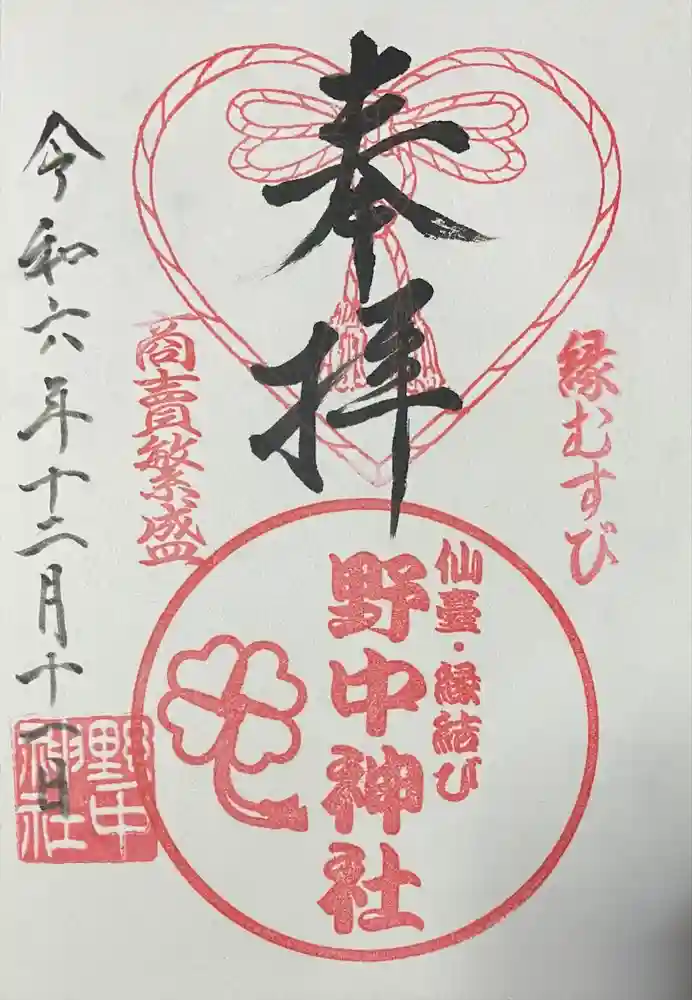 縁むすび
奉拝
仙臺・縁結び
野中神社
商賣繁盛
令和六年十二月十一日
野中
神社